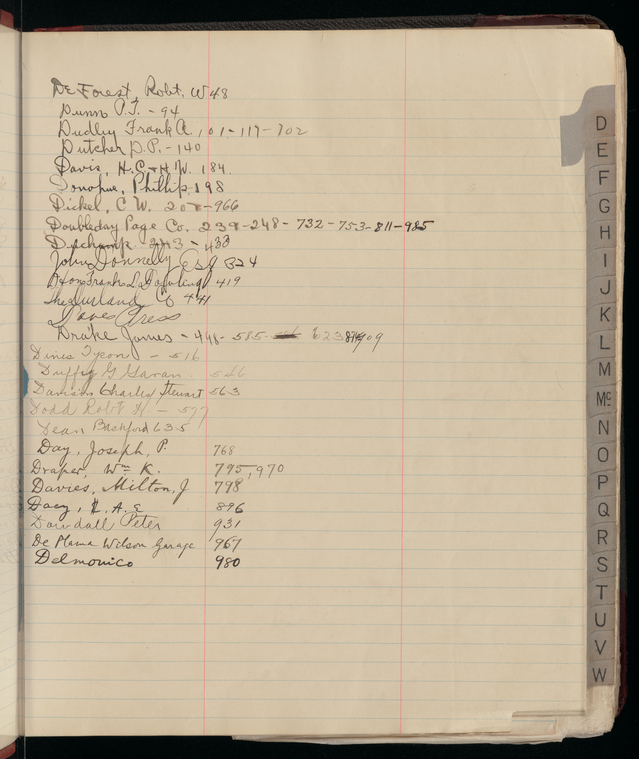 De Forest, Robt. W 48
Dunn P.T. - 94
Dudley Frank A. 101-119-702
Dutcher D.P. - 140
Davis, H.C. & H.W. 184.
Donohue, Phillip. 198
Dickel, C W. 208-966
Doubleday Page Co. 239-248-732-753-811-985
433
John Donnelly 324
Hon Frank L. Dowling 419
Co 441
Daves Press
Drake James - 498-585- 623 909
Dines Tyson - 516
Duffy G Gavan. 546
Davison Charles Stewart 563
Todd Robt H - 577
Dean Bashford 635
Day, Joseph, P. 768
Draper, Wm K. 795, 970
Davies, Milton, J 798
L.A.E 896
Dowdall Peter 931
De Mama Wilson Garage 967
Delmonico 980
D
E
F
G
H
I
J
K
L
M
Mc
N
O
P
Q
R
S
T
U
V
W